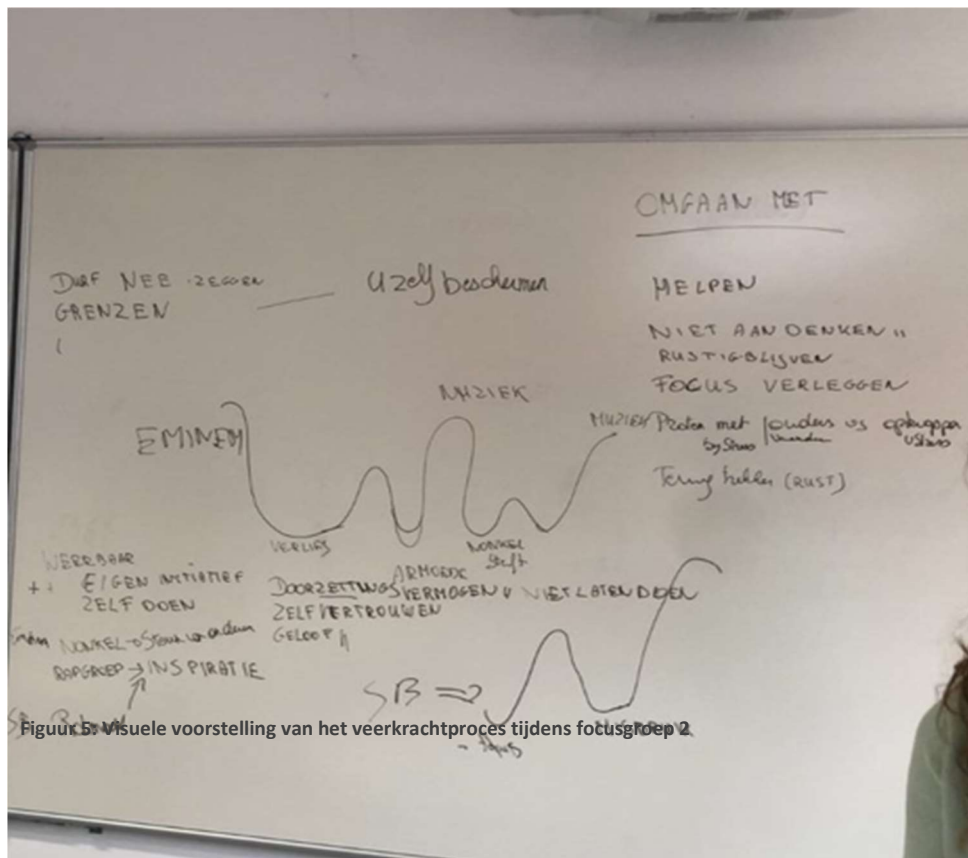 OMGAAN MET
DURF NEE ZEGGEN
GRENZEN
Uzelf beschermen
HELPEN
NIET AAN DENKEN
RUSTIG BLIJVEN
FOCUS VERLEGGEN
MUZIEK
EMINEM
MUZIEK Praten met ouders vs opkroppen
vrienden
Terug (RUST)
VERLIES
NONKEL
sterft
ARMOEDE
WEERBAAR
++ EIGEN INITIATIEF
ZELF DOEN
DOORZETTINGSVERMOGEN NIET LATEN DOEN
ZELFVERTROUWEN
GELOOF
NONKEL → Steun
RAPGROEP → INSPIRATIE
SB
Figuur 5: Visuele voorstelling van het veerkrachtproces tijdens focusgroep 2